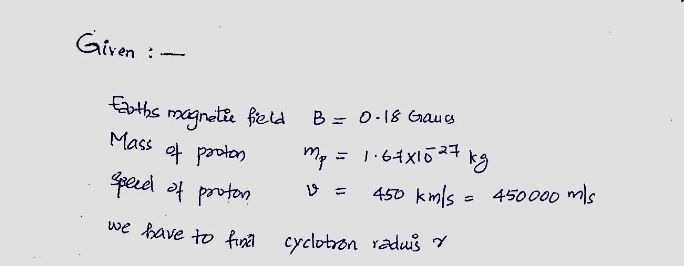 Given : —
Earths magnetic field B = 0.18 Gauss
Mass of proton m_p = 1.67×10^-27 kg
Speed of proton v = 450 km/s = 450000 m/s
we have to find cyclotron raduis r